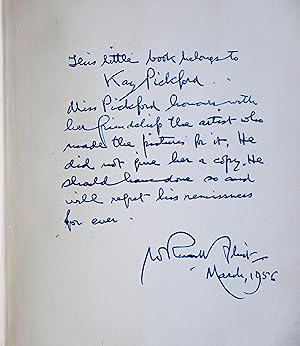 This little book belongs to
Kay Pickford . .
Miss Pickford honours with
her friendship the artist who
made the pictures for it. He
did not give her a copy. He
should have done so and
will regret his remissness
for ever.
W Russell Flint
March, 1956